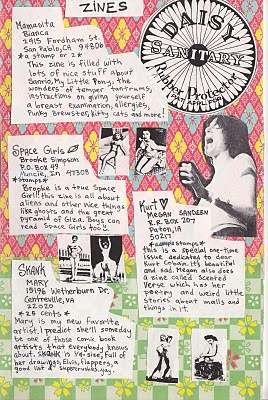 ZINES
Mamasita
Bianca
2415 Fordham St.
San Pablo, CA 94806
*a stamp or 2*
This zine is filled with
lots of nice stuff about
Sanrio, My Little Pony, the
wonders of temper tantrums,
instructions on giving yourself
a breast examination, allergies,
Punky Brewster, kitty cats and more!
DAISY
SANITARY
Space Girls
Brooke Simpson
P.O. Box 49
Muncie, IN 47308
*stamps*
Brooke is a true Space
Girl!! this zine is all about
aliens and other nice things
like ghosts and the great
pyramid of Giza. Boys can
read Space Girls too!!
Kurt
MEGAN SANDEEN
R.R. BOX 207
Paton, IA
50217
stamps
This is a special one-time
issue dedicated to dear
Kurt Cobain. It's beautiful
and sad. Megan also does
a zine called Scented
Verse which has her
poetry and weird little
stories about malls and
things in it.
SKANK
MARY
15198 Wetherburn Dr.
Centreville, VA
22020
*25 cents*
Mary is my new favorite
artist. I predict she'll someday
be one of those comic book
artists that everybody knows
about. SKANK is ¼-size, full of
her drawings, Elvis, flappers,
a good list